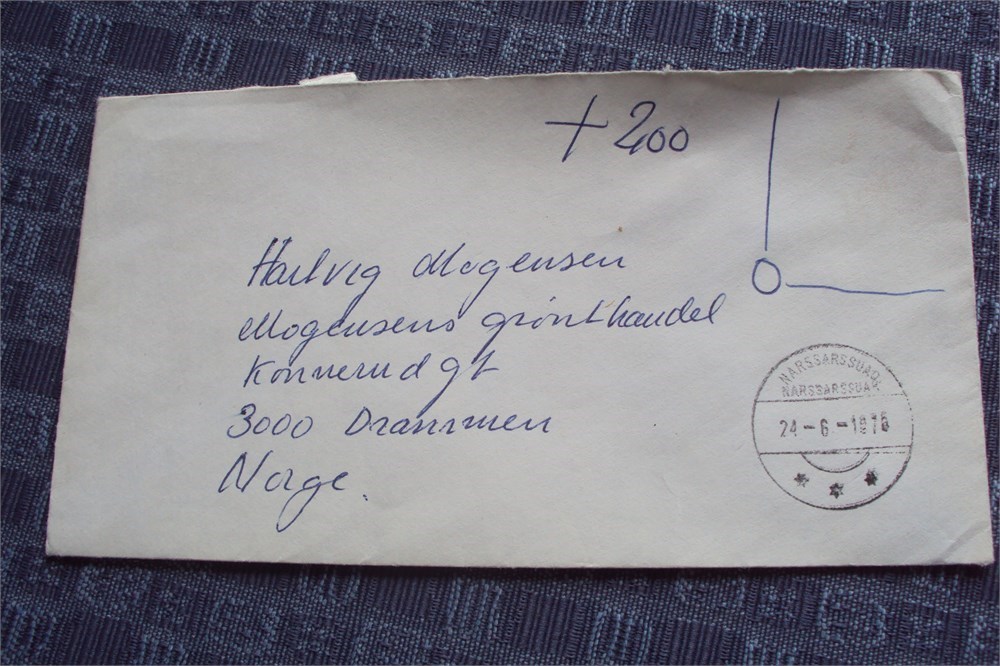 + 200
Hartvig Mogensen
Mogensens grønthandel
Konnerud gt
3000 Drammen
Norge.
O
NARSSARSSUAQ
NARSSARSSUAQ
24-6-1976